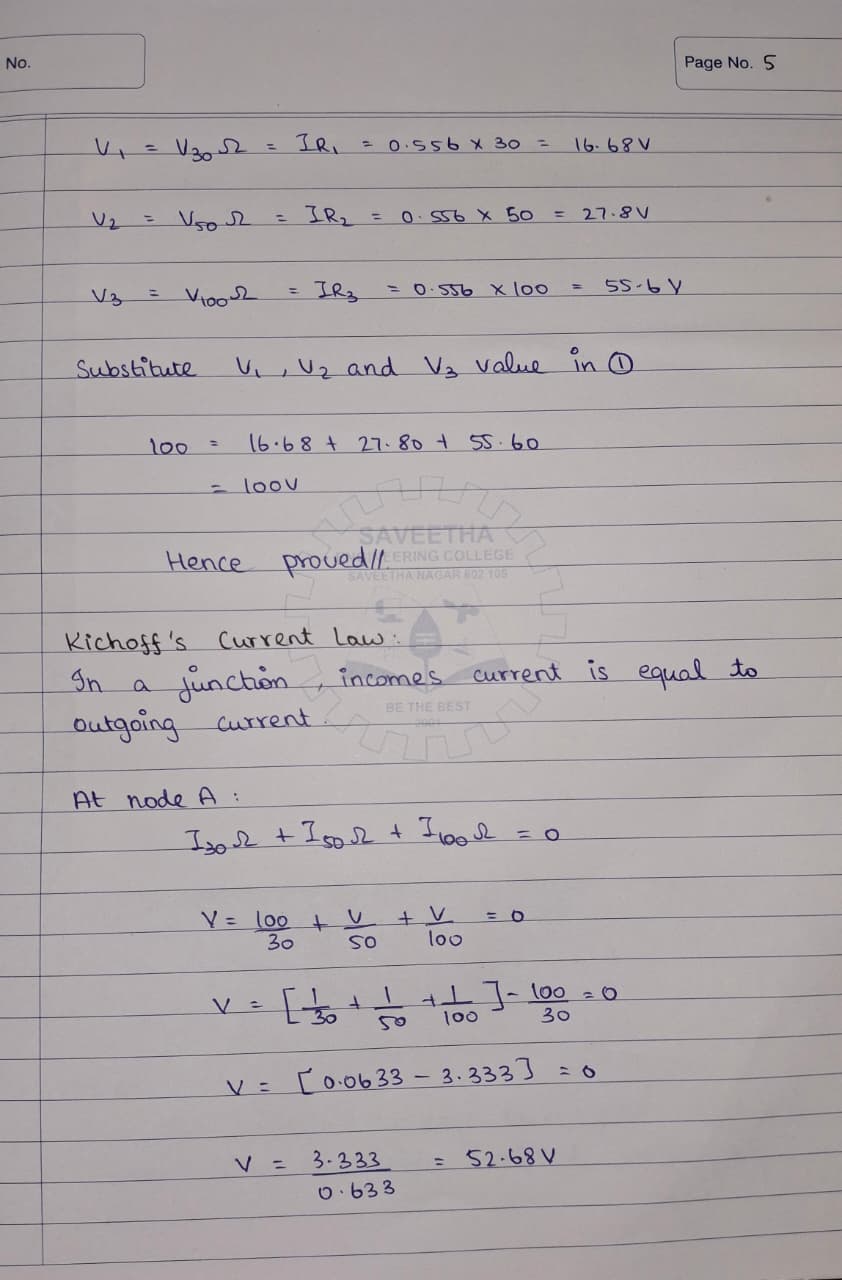 No.
Page No. 5
V₁ = V₃₀ Ω = IR₁ = 0.556 x 30 = 16.68V
V₂ = V₅₀ Ω = IR₂ = 0.556 x 50 = 27.8V
V₃ = V₁₀₀ Ω = IR₃ = 0.556 x 100 = 55.6 V
Substitute V₁, V₂ and V₃ value in ①
100 = 16.68 + 27.80 + 55.60
= 100V
SAVEETHA
Hence proved//.
ERING COLLEGE
SAVEETHA NAGAR 602 105
Kichoff's Current Law:
In a junction, incomes current is equal to
BE THE BEST
outgoing current.
2001
At node A :
I₃₀ Ω + I₅₀ Ω + I₁₀₀ Ω = 0
V = 100/30 + V/50 + V/100 = 0
V = [1/30 + 1/50 + 1/100] - 100/30 = 0
V = [0.0633 - 3.333] = 0
V = 3.333/0.633 = 52.68V